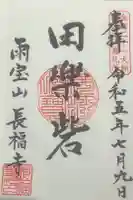 奉拝 令和五年七月九日
田樂砦
雨宝山 長福寺